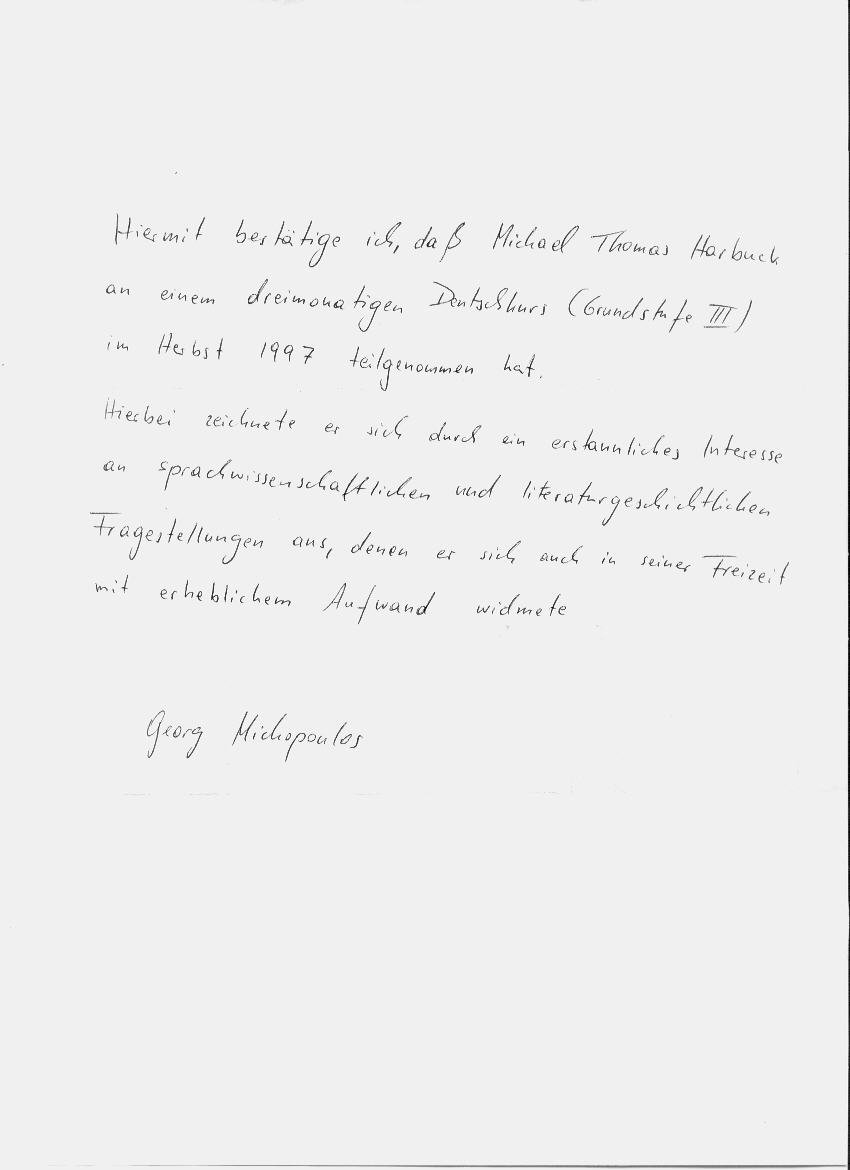 Hiermit bestätige ich, daß Michael Thomas Harbuck
an einem dreimonatigen Deutschkurs (Grundstufe III)
im Herbst 1997 teilgenommen hat.
Hierbei zeichnete er sich durch ein erstaunliches Interesse
an sprachwissenschaftlichen und literaturgeschichtlichen
Fragestellungen aus, denen er sich auch in seiner Freizeit
mit erheblichem Aufwand widmete
Georg Michopoulos